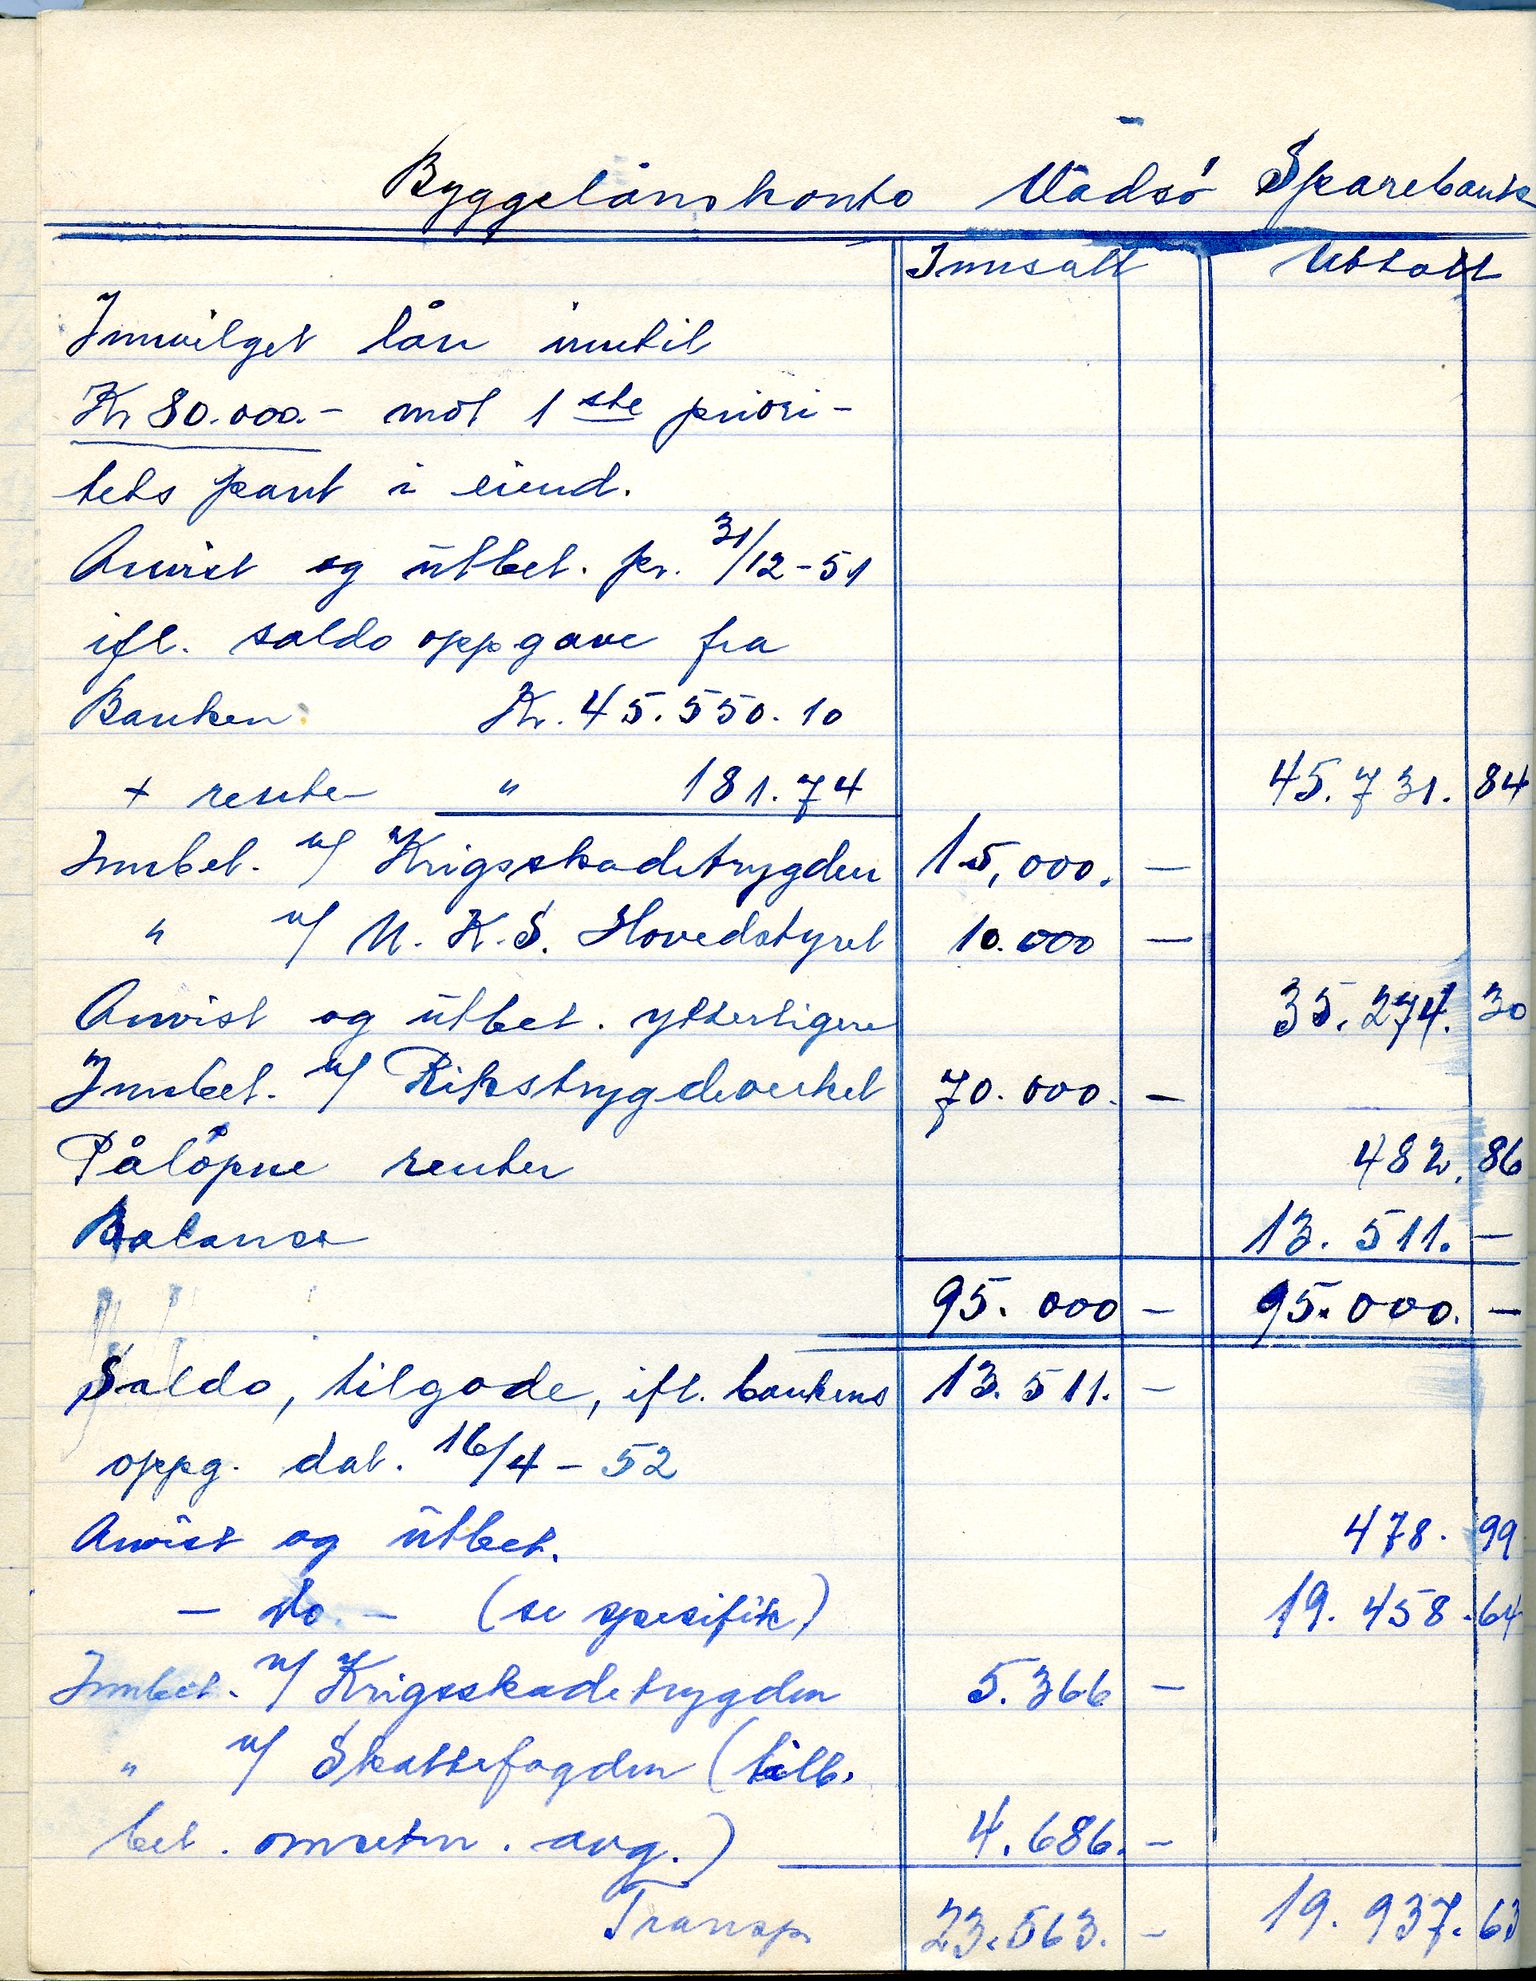 Byggelånskonto Vadsø Sparebank
Innsatt Uttatt
Innvilget lån inntil
Kr 80.000.- mot 1ste priori-
tets pant i eiend.
Anvist og utbet. pr. 31/12-51
ifl. saldo oppgave fra
Banken Kr. 45.550.10
+ renter " 181.74 45.731.84
Innbet. v/ Krigsskadetrygden 15,000. —
" v/ N.K.S. Hovedstyret 10.000 —
Anvist og utbet. ytterligere 35.274.30
Innbet. v/ Rikstrygdeverket 70.000. —
Påløpne renter 482.86
Balanse 13.511. —
95.000 — 95.000. —
Saldo, tilgode, ifl. bankens 13.511. —
oppg. dat. 16/4 - 52
Anvist og utbet. 478.99
— do — (se spesifik) 19.458.64
Innbet. v/ Krigsskadetrygden 5.366 —
" v/ Skattefogden (tilb.
bet. omsetn. avg.) 4.686. —
Transp. 23.563. — 19.937.63